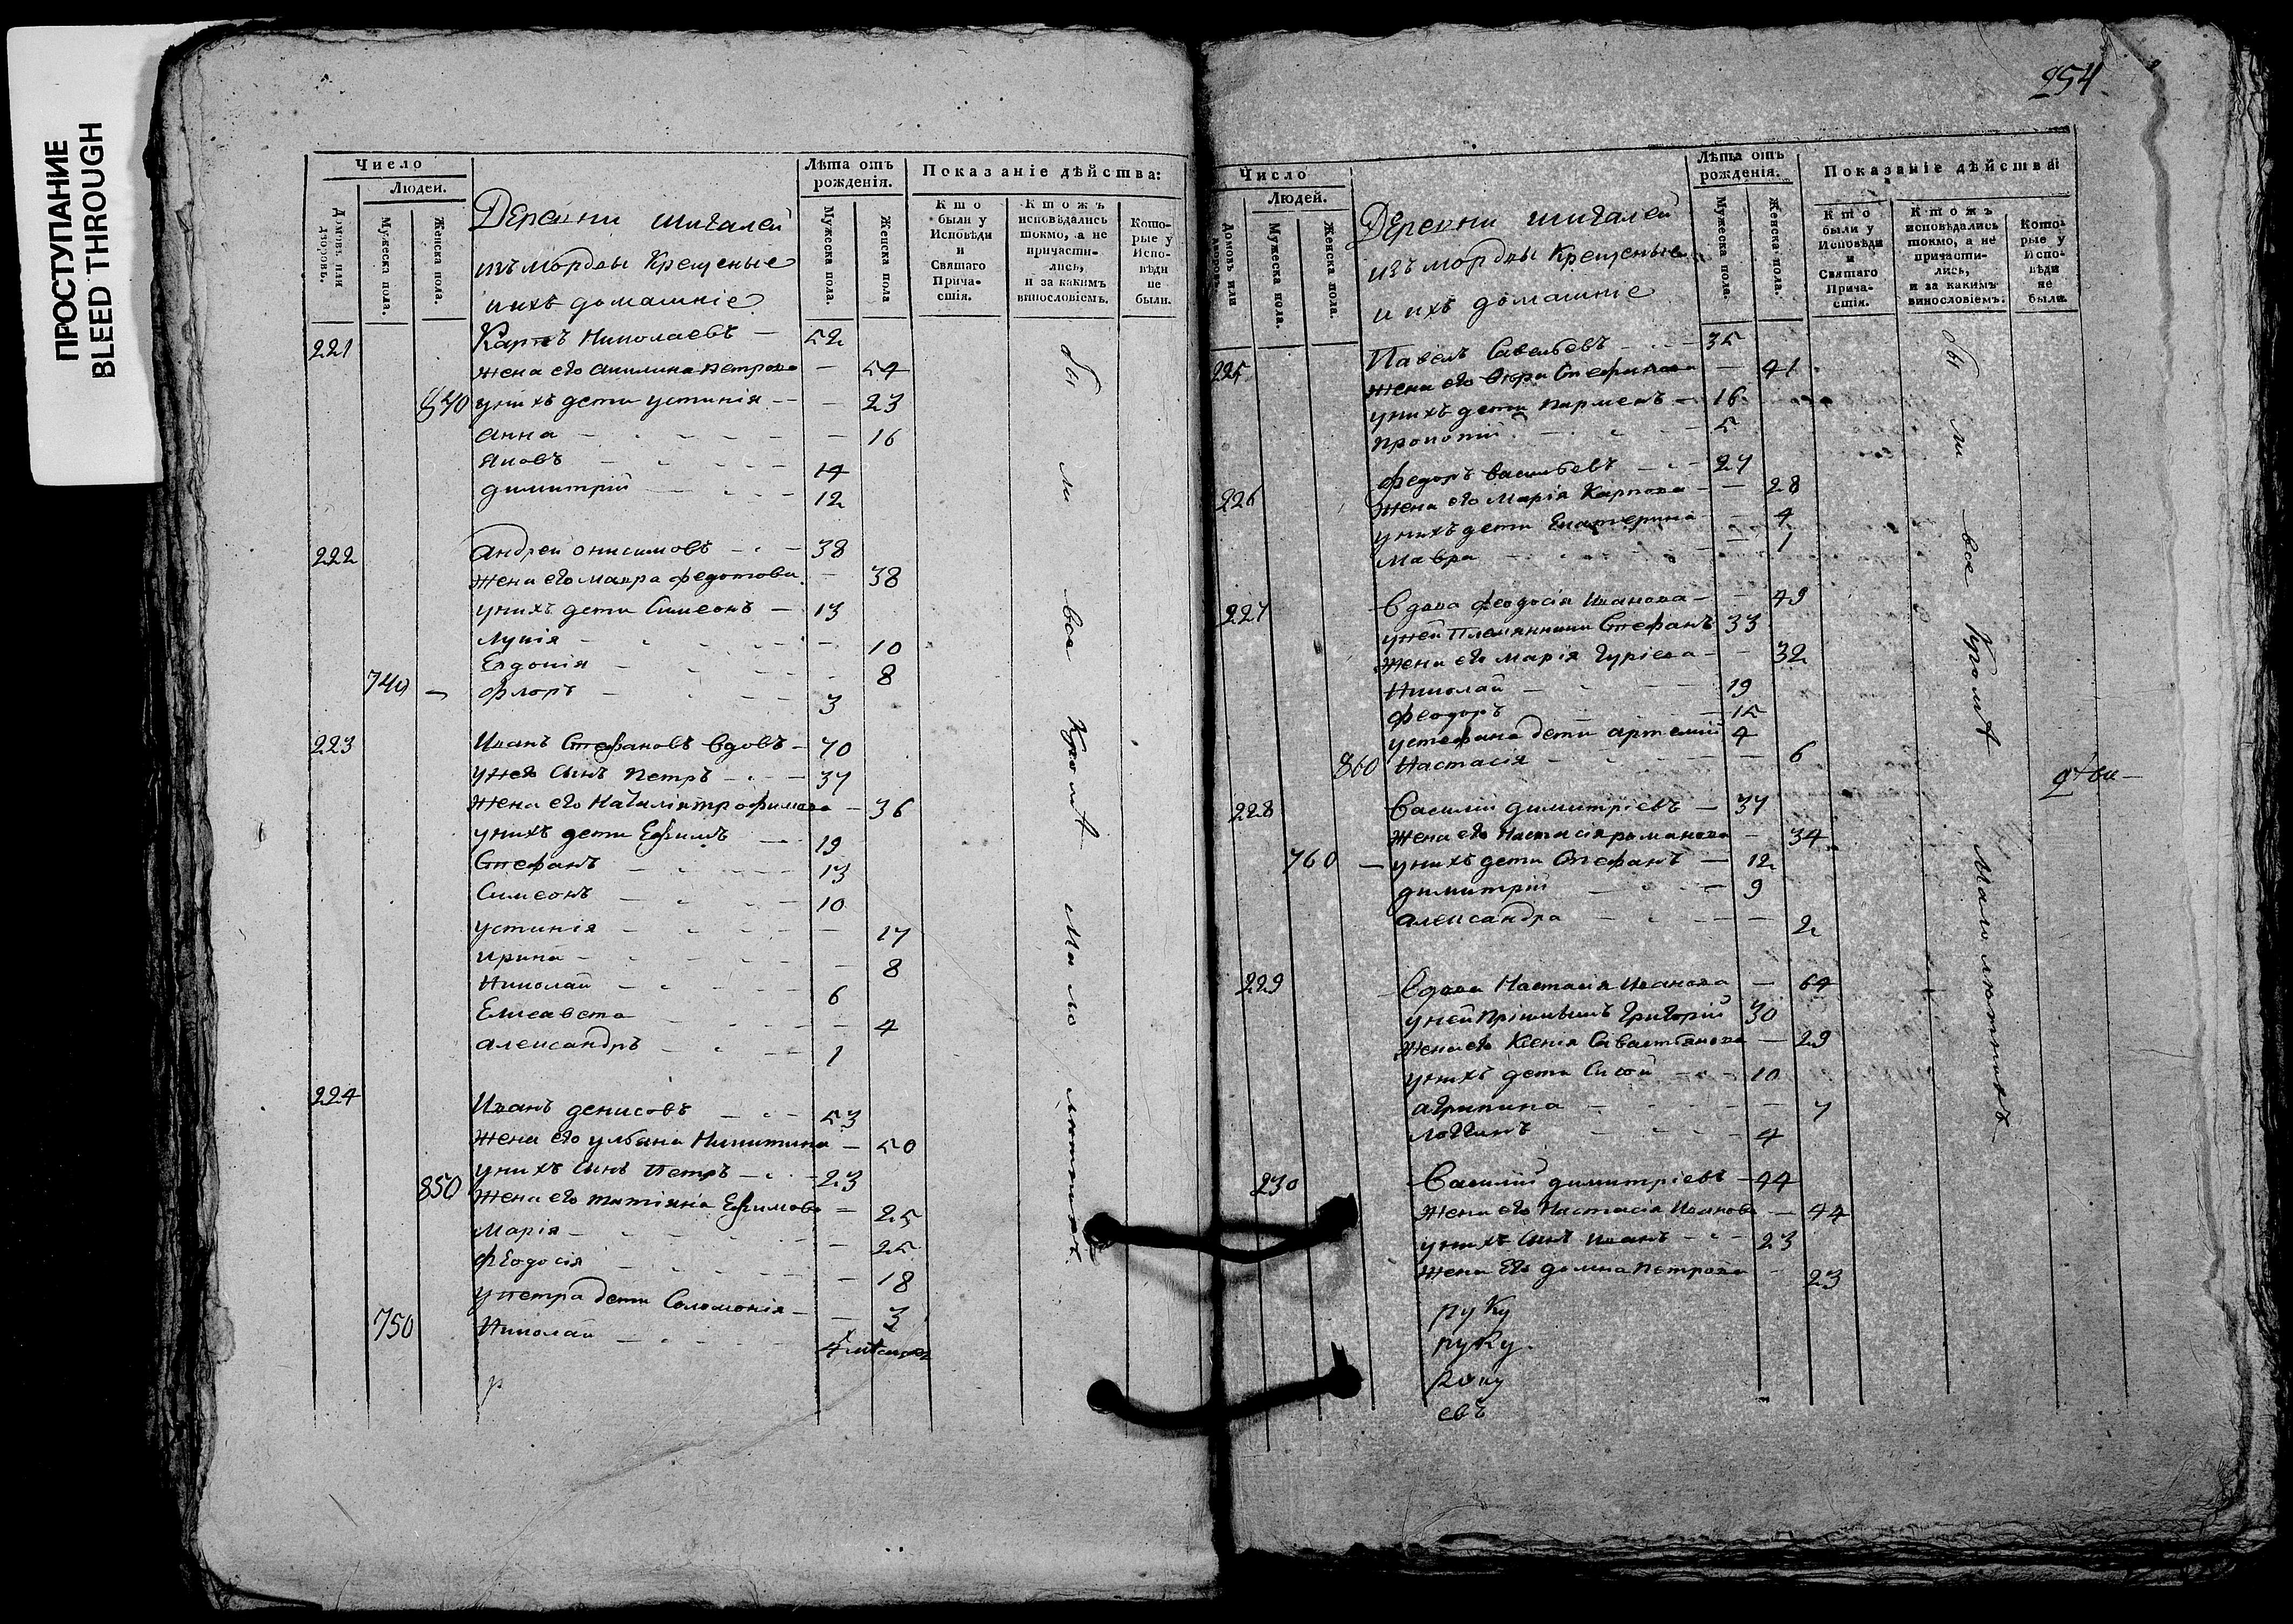 ПРОСТУПАНИЕ
BLEED THROUGH
Число
Людей.
Домовъ или дворовъ.
Мужеска пола.
Женска пола.
Деревни шигалей
изъ мордвы Крещеные
и ихъ домашніе
Лѣта отъ рожденія.
Мужеска пола.
Женска пола
Показаніе дѣйства:
Кто были у Исповѣди и Святаго Причастія.
Ктожъ исповѣдались токмо, а не причастились, и за какимъ винословіемъ.
Которые у Исповѣди не были.
221 Карпъ Николаевъ — 52
жена его акилина петрова — 54
840 у нихъ дети устинія — — 23
анна — 16
яковъ 14
димитрій 12
222 андрей онисимовъ — 38
жена его мавра федотова — 38
у нихъ дети Симеонъ — 13
лукія — 10
Евдокія — 8
740 — флоръ — 3
223 Иванъ Стефановъ вдовъ — 70
у него сынъ петръ — 37
жена его Наталія трофимова — 36
у нихъ дети Ефимъ — 19
Стефанъ 13
Симеонъ 10
устинія — 17
ирина — 8
Николай 6
Елисавета — 4
александръ 1
224 Иванъ денисовъ — 53
жена его ульяна Никитина — 50
у нихъ сынъ Петръ — 23
850 жена его татіяна Ефимова — 25
Марія — 25
феодосія — 18
у петра дети Соломонія — 3
750 Николай 4 месяца
р
бы ли все Кромѣ Мало лютнихъ
254
Число
Людей.
Домовъ или дворовъ.
Мужеска пола.
Женска пола.
Деревни шигалей
изъ мордвы Крещеные
и ихъ домашніе
Лѣта отъ рожденія.
Мужеска пола.
Женска пола.
Показаніе дѣйства:
Кто были у Исповѣди и Святаго Причастія.
Ктожъ исповѣдались токмо, а не причастились, и за какимъ винословіемъ.
Которые у Исповѣди не были.
225 Павелъ Савельевъ — 35
жена его Стефанова — 41
у нихъ дети парменъ — 16
прокопій 5
226 федоръ васильевъ — 27
жена его марія Карпова — 28
у нихъ дети Екатерина — 4
мавра — 1
227 вдова феодосія иванова — 49
у ней племянники Стефанъ 33
жена его марія гуріева — 32
Николай 19
феодоръ 15
у стефана дети артемій 4
860 Настасія — 6
228 василій димитріевъ — 37
жена его Настасія романова — 34
760 — у нихъ дети Стефанъ — 12
димитрій — 9
александра — 2
229 вдова Настасія иванова — 64
у ней Григорій 30
жена его Ксенія Савастьянова — 29
у нихъ дети Сисой — 10
агрипина — 7
логгинъ 4
230 Василій димитріевъ — 44
жена его Настасія иванова — 44
у нихъ сынъ иванъ — 23
жена его домна петрова — 23
руку
руку.
року
евъ
бы ли все Кромѣ Мало лютнихъ